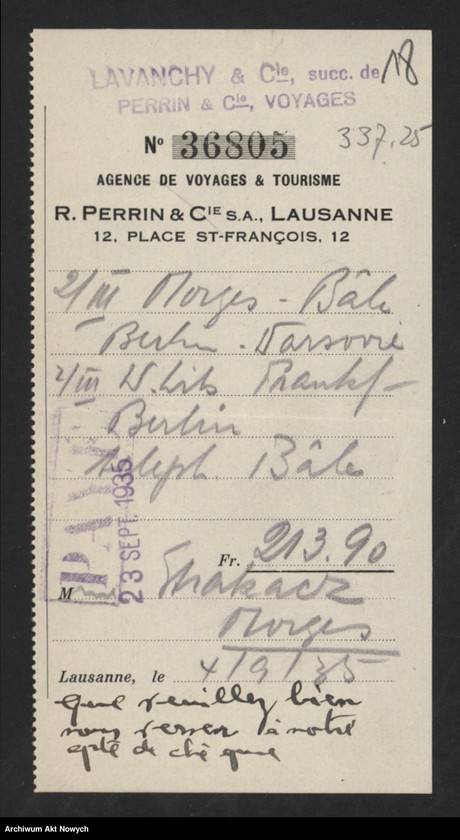 LAVANCHY & Cie, succ. de
PERRIN & Cie, VOYAGES
18
337.25
No 36805
AGENCE DE VOYAGES & TOURISME
R. PERRIN & CIE S.A., LAUSANNE
12, PLACE ST-FRANÇOIS, 12
2/III Morges - Bâle
Berlin - Varsovie
2/III W. Lits Frankf
- Berlin
Bâle
PAYÉ
23 SEPT. 1935
Fr. 213.90
M
Morges
Lausanne, le 4/9/35
veuillez bien
nous verser à notre
cpte de chèque
Archiwum Akt Nowych